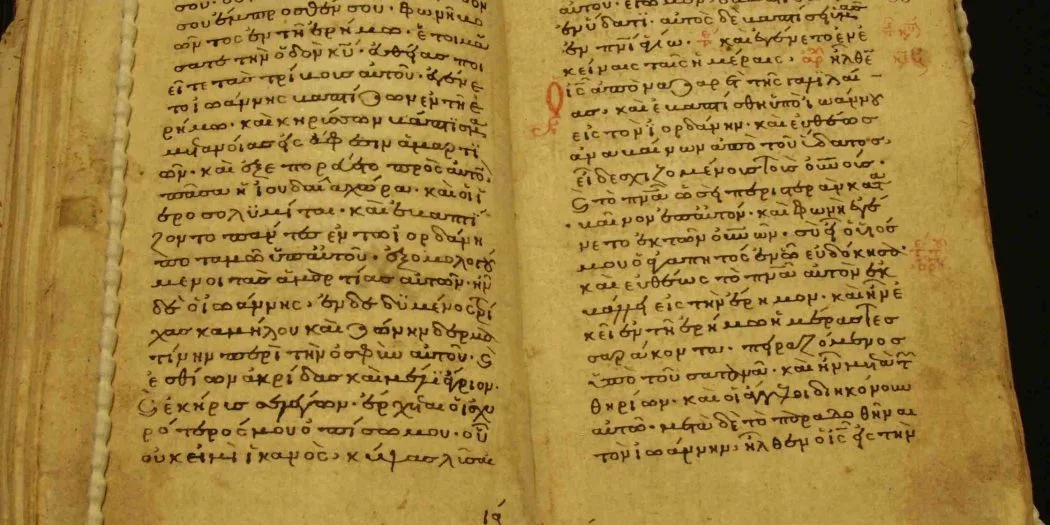 σου ἔμπροσθέν σου· φωνὴ βο
ῶντος ἐν τῇ ἐρήμω· ἑτοιμά
σατε τὴν ὁδὸν κῡ· εὐθείας ποι
εῖτε τὰς τρίβους αὐτοῦ· ἐγένε
το ἰωάννης βαπτίζων ἐν τῇ ἐ
ρήμω· καὶ κηρύσσων βάπτισμα
μετανοίας εἰς ἄφεσιν ἁμαρτι
ῶν· καὶ ἐξεπορεύετο πρὸς αὐτὸν
πᾶσα ἡ ἰουδαία χώρα· καὶ οἱ ἱ
εροσολυμῖται· καὶ ἐβαπτί
ζοντο πάντες ἐν τῶ ἰορδάνη
ποταμῶ ὑπ αὐτοῦ· ἐξομολογού
μενοι τὰς ἁμαρτίας αὐτῶν· ἦν
δὲ ὁ ἰωάννης· ἐνδεδυμένος τρί
χας καμήλου καὶ ζώνην δερμα
τίνην περὶ τὴν ὀσφὺν αὐτοῦ· ϗ
ἐσθίων ἀκρίδας καὶ μέλι ἄγριον·
ϗ ἐκήρυσσε λέγων· ἔρχεται ὁ ἰσχυ
ρότερός μου ὀπίσω μου· οὗ
οὐκ εἰμὶ ἱκανὸς· κύψας λῦσαι
ια
ἐν ὕδατι· αὐτὸς δὲ βαπτίσει ὑμᾶς
ἐν πνι ἁγίω· καὶ ἐγένετο ἐν ἐ
κείναις ταῖς ἡμέραις· ἦλθεν
ις ἀπὸ ναζαρὲτ τῆς γαλιλαί
ας· καὶ ἐβαπτίσθη ὑπὸ ἰωάννου
εἰς τὸν ἰορδάνην· καὶ εὐθέως
ἀναβαίνων ἀπὸ τοῦ ὕδατος·
εἶδε σχιζομένους τοὺς οὐνούς·
ϗ τὸ πνα ὡσεὶ περιστερὰν κατα
βαῖνον ἐπ αὐτόν· καὶ φωνὴ ἐγέ
νετο ἐκ τῶν οὐνῶν· σὺ εἶ ὁ υἱός
μου ὁ ἀγαπητὸς ἐν ὧ εὐδόκησα·
καὶ εὐθέως τὸ πνα αὐτὸν ἐκ
βάλλει εἰς τὴν ἔρημον· καὶ ἦν ἐ
κεῖ ἐν τῇ ἐρήμω ἡμέρας τεσ
σαράκοντα· πειραζόμενος
ὑπὸ τοῦ σατανᾶ· καὶ ἦν μετὰ τῶν
θηρίων· καὶ οἱ ἄγγελοι διηκόνουν
αὐτῶ· μετὰ δὲ τὸ παραδοθῆναι
τὸν ἰωάννην· ἦλθεν ὁ ις εἰς τὴν